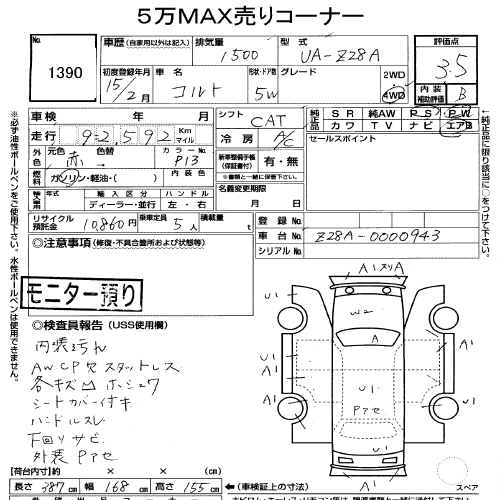 5万MAX売りコーナー
No.
1390
車歴 (自家用以外は記入)
排気量
1500
型式
UA-Z28A
評価点
3.5
初度登録年月
15/2月
車名
コルト
形状・ドア数
5W
グレード
2WD
4WD
内装
補助評価
B
車検 年 月
シフト
CAT
純正品
SR 純AW PS PW
カワ TV ナビ エアB
走行 92,592 Km マイル
冷房
A/C
セールスポイント
外色
元色 色替
赤
カラーNo.
P13
新車整備手帳
(保証書付)
有・無
※書類と一緒に保管して下さい。
燃料
ガソリン・軽油・( )
内装色
輸入車
年式 輸入区分 ハンドル
ディーラー・並行 左・右
名義変更期限
月 日
リサイクル預託金
10,860円
乗車定員
5人
積載量
t
登録No.
車台No.
Z28A-0000943
シリアルNo.
◎注意事項 (修復・不具合箇所および状態等)
モニター預り
◎検査員報告 (USS使用欄)
AWCPキズ スタットレス
シートカバー付キ
ハンドルスレ
下回リサビ
外装Pアセ
【荷台内寸】約 × × (cm)
長さ 387 cm 幅 168 cm 高さ 155 cm
(車検証上の寸法)
スペア
※必ず油性ボールペンをご使用下さい。水性ボールペンは使用できません。
←純正品に限り該当に○をつけて下さい。
A1スリA
U1
U1
W2
A
A1
A1
U1
Pアセ
U1
U1
A1
A1
A1